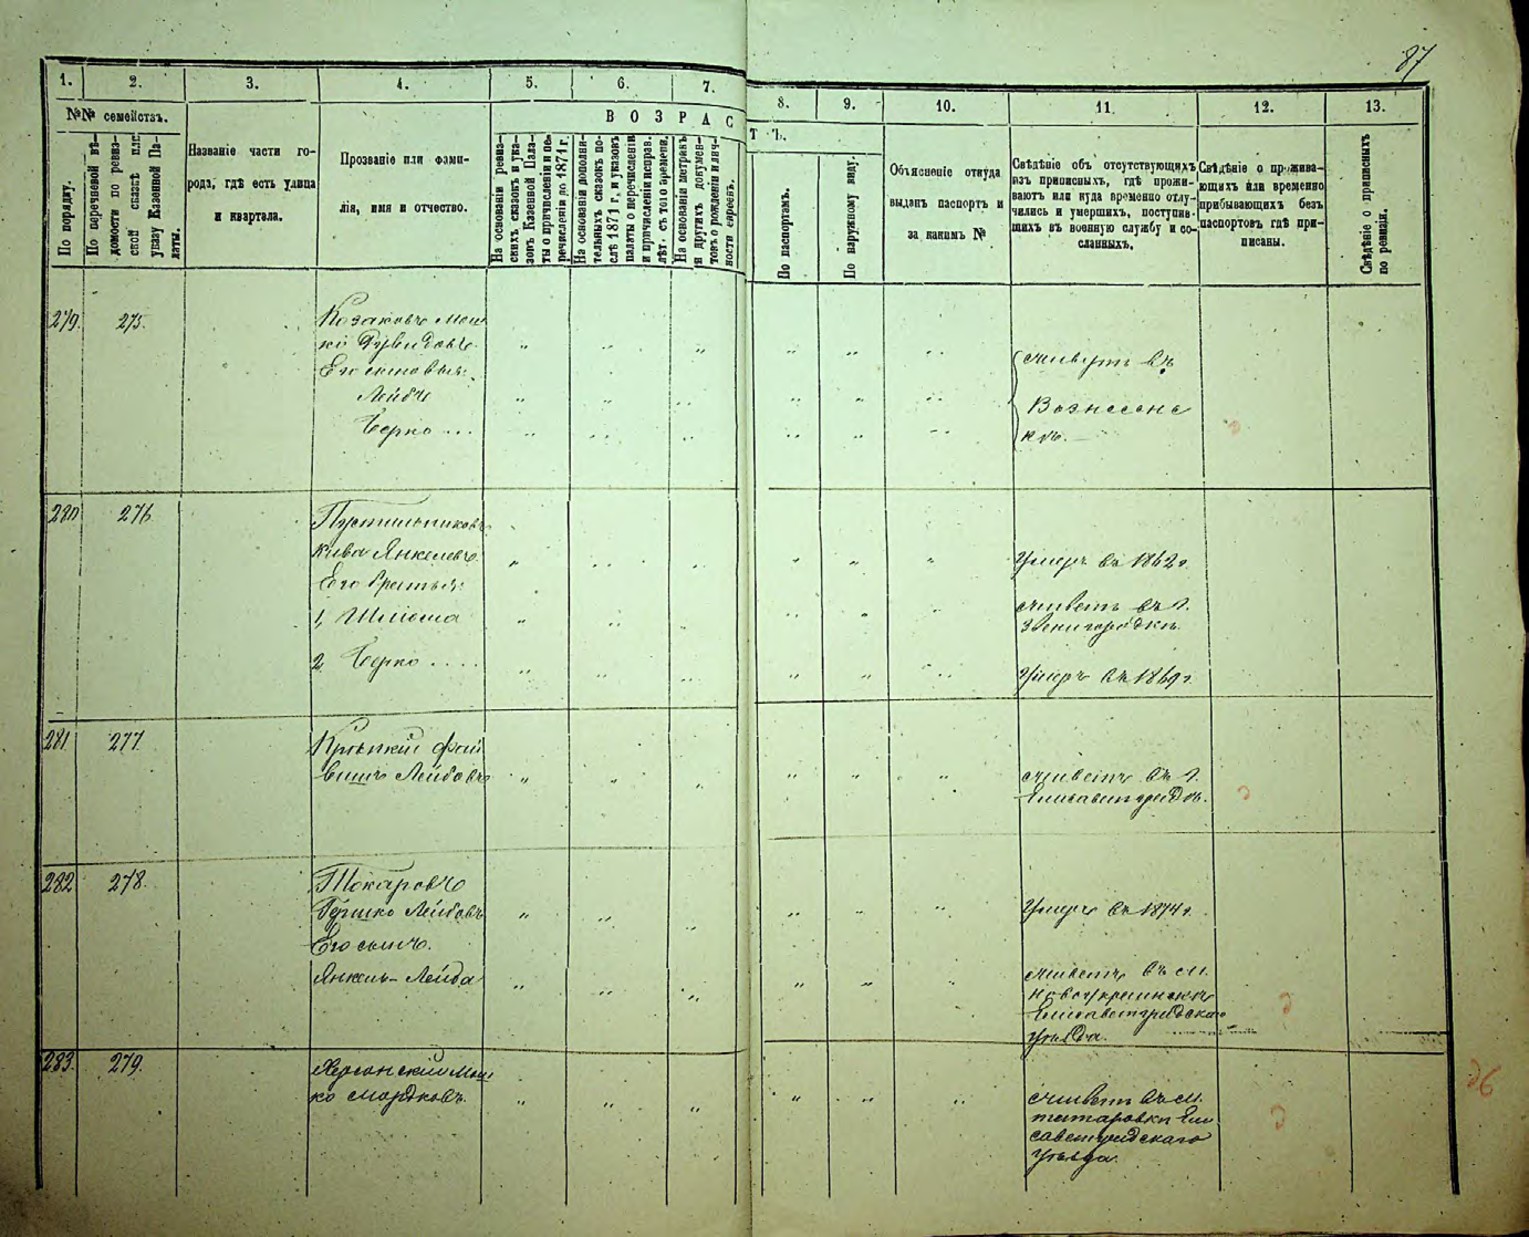 87
1. 2. 3. 4. 5. 6. 7. 8. 9. 10. 11. 12. 13.
№№ семействъ.
По порядку.
По перечневой вѣ-
домости по ревиз-
ской сказкѣ или
указу Казенной Па-
латы.
Названіе части го-
рода, гдѣ есть улица
и квартала.
Прозваніе или фами-
лія, имя и отчество.
ВОЗРАСТЪ.
На основаніи ревиз-
скихъ сказокъ и ука-
зовъ Казенной Пала-
ты о причисленіи и пе-
речисленіи до 1871 г.
На основаніи дополни-
тельныхъ сказокъ по-
слѣ 1871 г. и указовъ
палаты о перечисленіи
и причисленіи исправ.
лѣт. съ того времени.
На основаніи метрикъ
и другихъ докумен-
товъ о рожденіи и лич-
ности евреевъ.
По паспортамъ.
По наружному виду.
Объясненіе откуда
выданъ паспортъ и
за какимъ №
Свѣдѣніе объ отсутствующихъ
изъ приписныхъ, гдѣ прожи-
ваютъ или куда временно отлу-
чились и умершихъ, поступив-
шихъ въ военную службу и со-
сланныхъ.
Свѣдѣніе о прожива-
ющихъ или временно
прибывающихъ безъ
паспортовъ гдѣ при-
писаны.
Свѣдѣніе о приписныхъ
по ревизіи.
279. 275. Козаковъ Мош
ко Дувидовъ
Его сыновья:
Лейбъ
Берко ...
живутъ въ
Вознесенс
кѣ.
280 276 Пустильниковъ
Акива Янкелевъ
Его братья:
1, Шлиома
2 Берко ....
Умеръ въ 1862 г.
живетъ въ г.
Звенигородкѣ.
Умеръ въ 1869 г.
281 277 Кроткій Фай
вишъ Лейбовъ
живетъ въ г.
Елисаветградѣ.
282 278. Токаровъ
Гершко Лейбовъ
Его сынъ.
Янкель-Лейба
Умеръ въ 1874 г.
живетъ въ м.
Новоукраинскѣ
Елисаветградскаго
уѣзда.
283. 279. Херсонскій Мош
ко Мордковъ.
живетъ въ м.
Татаровкѣ Ели
саветградскаго
уѣзда.